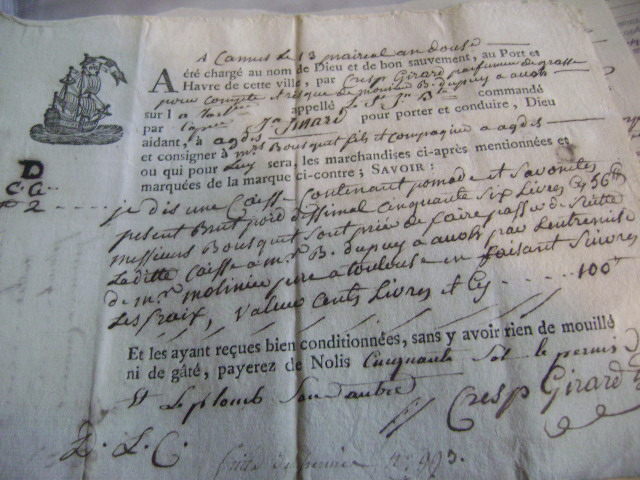 A Cannes le 13 prairial an douse
A été chargé au nom de Dieu et de bon sauvement, au Port et
Havre de cette ville, par Cresp Girard parfumeur de grasse
pour compte et risque de monsieur B. dupuy a auch
sur l a Tartane appellé le St. Jn. Bte. commandé
par Capne. Jn. Sinard pour porter et conduire, Dieu
aidant, à agdes
et consigner à mrs Bousquet fils et compagnie a agdes
ou qui pour Leuy sera, les marchandises ci-après mentionnées et
marquées de la marque ci-contre; SAVOIR:
D
C. G.
2
je dis une Caisse Contenant pomade et Savonetes
pesent Brut poid dessimal Cinquante six Livres Cy 56 tt
messieurs Bousquet sont prié de faire passé de suitte
Laditte Caisse a mr. B. dupuy a auch par Lentremise
de mr. molinier pere a toulouse en faisant suivre
Les fraix, Valeur Cents Livres et Cy 100 tt
Et les ayant reçues bien conditionnées, sans y avoir rien de mouillé
ni de gâté, payerez de Nolis Cinquante Sol le permis
et Le plomb Sans autre
Cresp Girard
L. L. C.
no. 993.